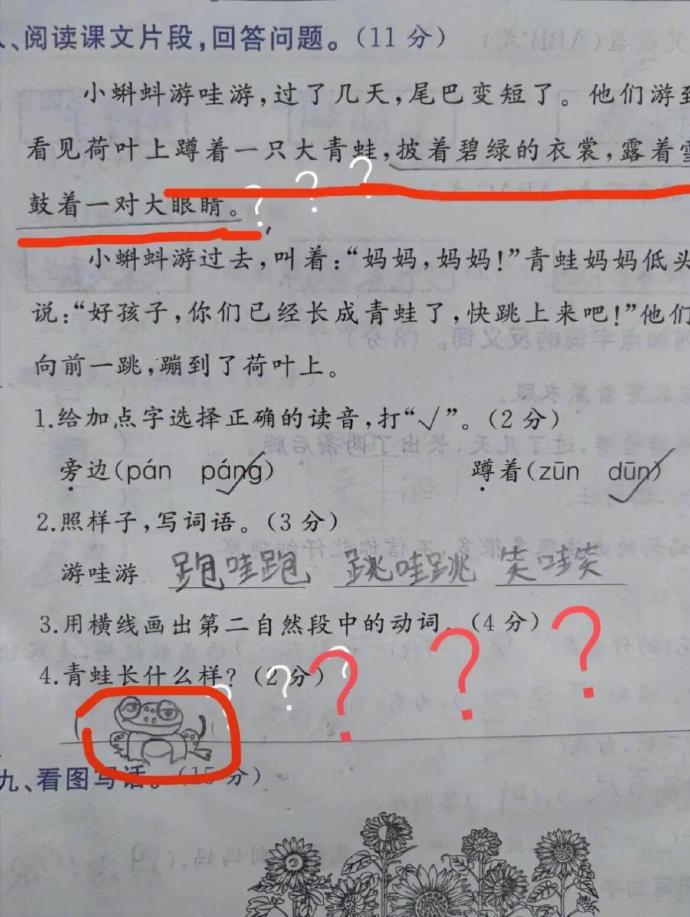 、阅读课文片段,回答问题。(11分)
小蝌蚪游哇游,过了几天,尾巴变短了。他们游到
看见荷叶上蹲着一只大青蛙,披着碧绿的衣裳,露着雪
鼓着一对大眼睛。
? ? ?
小蝌蚪游过去,叫着:“妈妈,妈妈!”青蛙妈妈低头
说:“好孩子,你们已经长成青蛙了,快跳上来吧!”他们
向前一跳,蹦到了荷叶上。
1.给加点字选择正确的读音,打“√”。(2分)
旁边(pán páng√) 蹲着(zūn dūn√)
2.照样子,写词语。(3分)
游哇游 跑哇跑 跳哇跳 笑哇笑
3.用横线画出第二自然段中的动词。(4分)
4.青蛙长什么样?(2分)
? ? ? ? ?
九、看图写话。(15分)